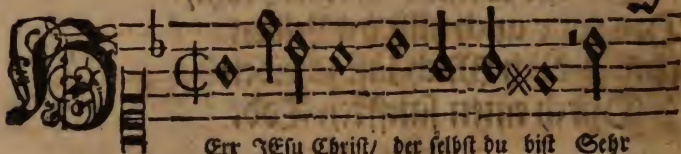 HErr JEsu Christ/ der selbst du bist Sehr